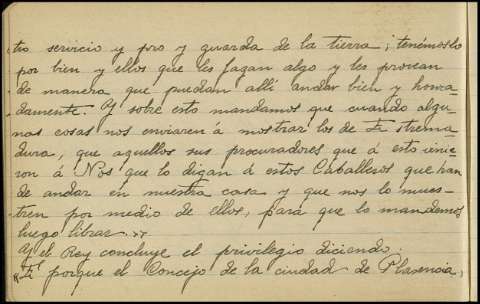 tro servicio y pro y guarda de la tierra; tenémoslo
por bien y ellos que les fagan algo y les provean
de manera que puedan allí andar bien y honra-
damente. Y sobre esto mandamos que cuando algu-
nas cosas nos enviaren á mostrar los de Estrema-
dura, que aquellos sus procuradores que á esto vinie-
ron á Nos que lo digan á estos Caballeros que han
de andar en nuestra casa y que nos lo mues-
tren por medio de ellos, para que lo mandemos
luego librar
Y el Rey concluye el privilegio diciendo:
E porque el Concejo de la ciudad de Plasencia,